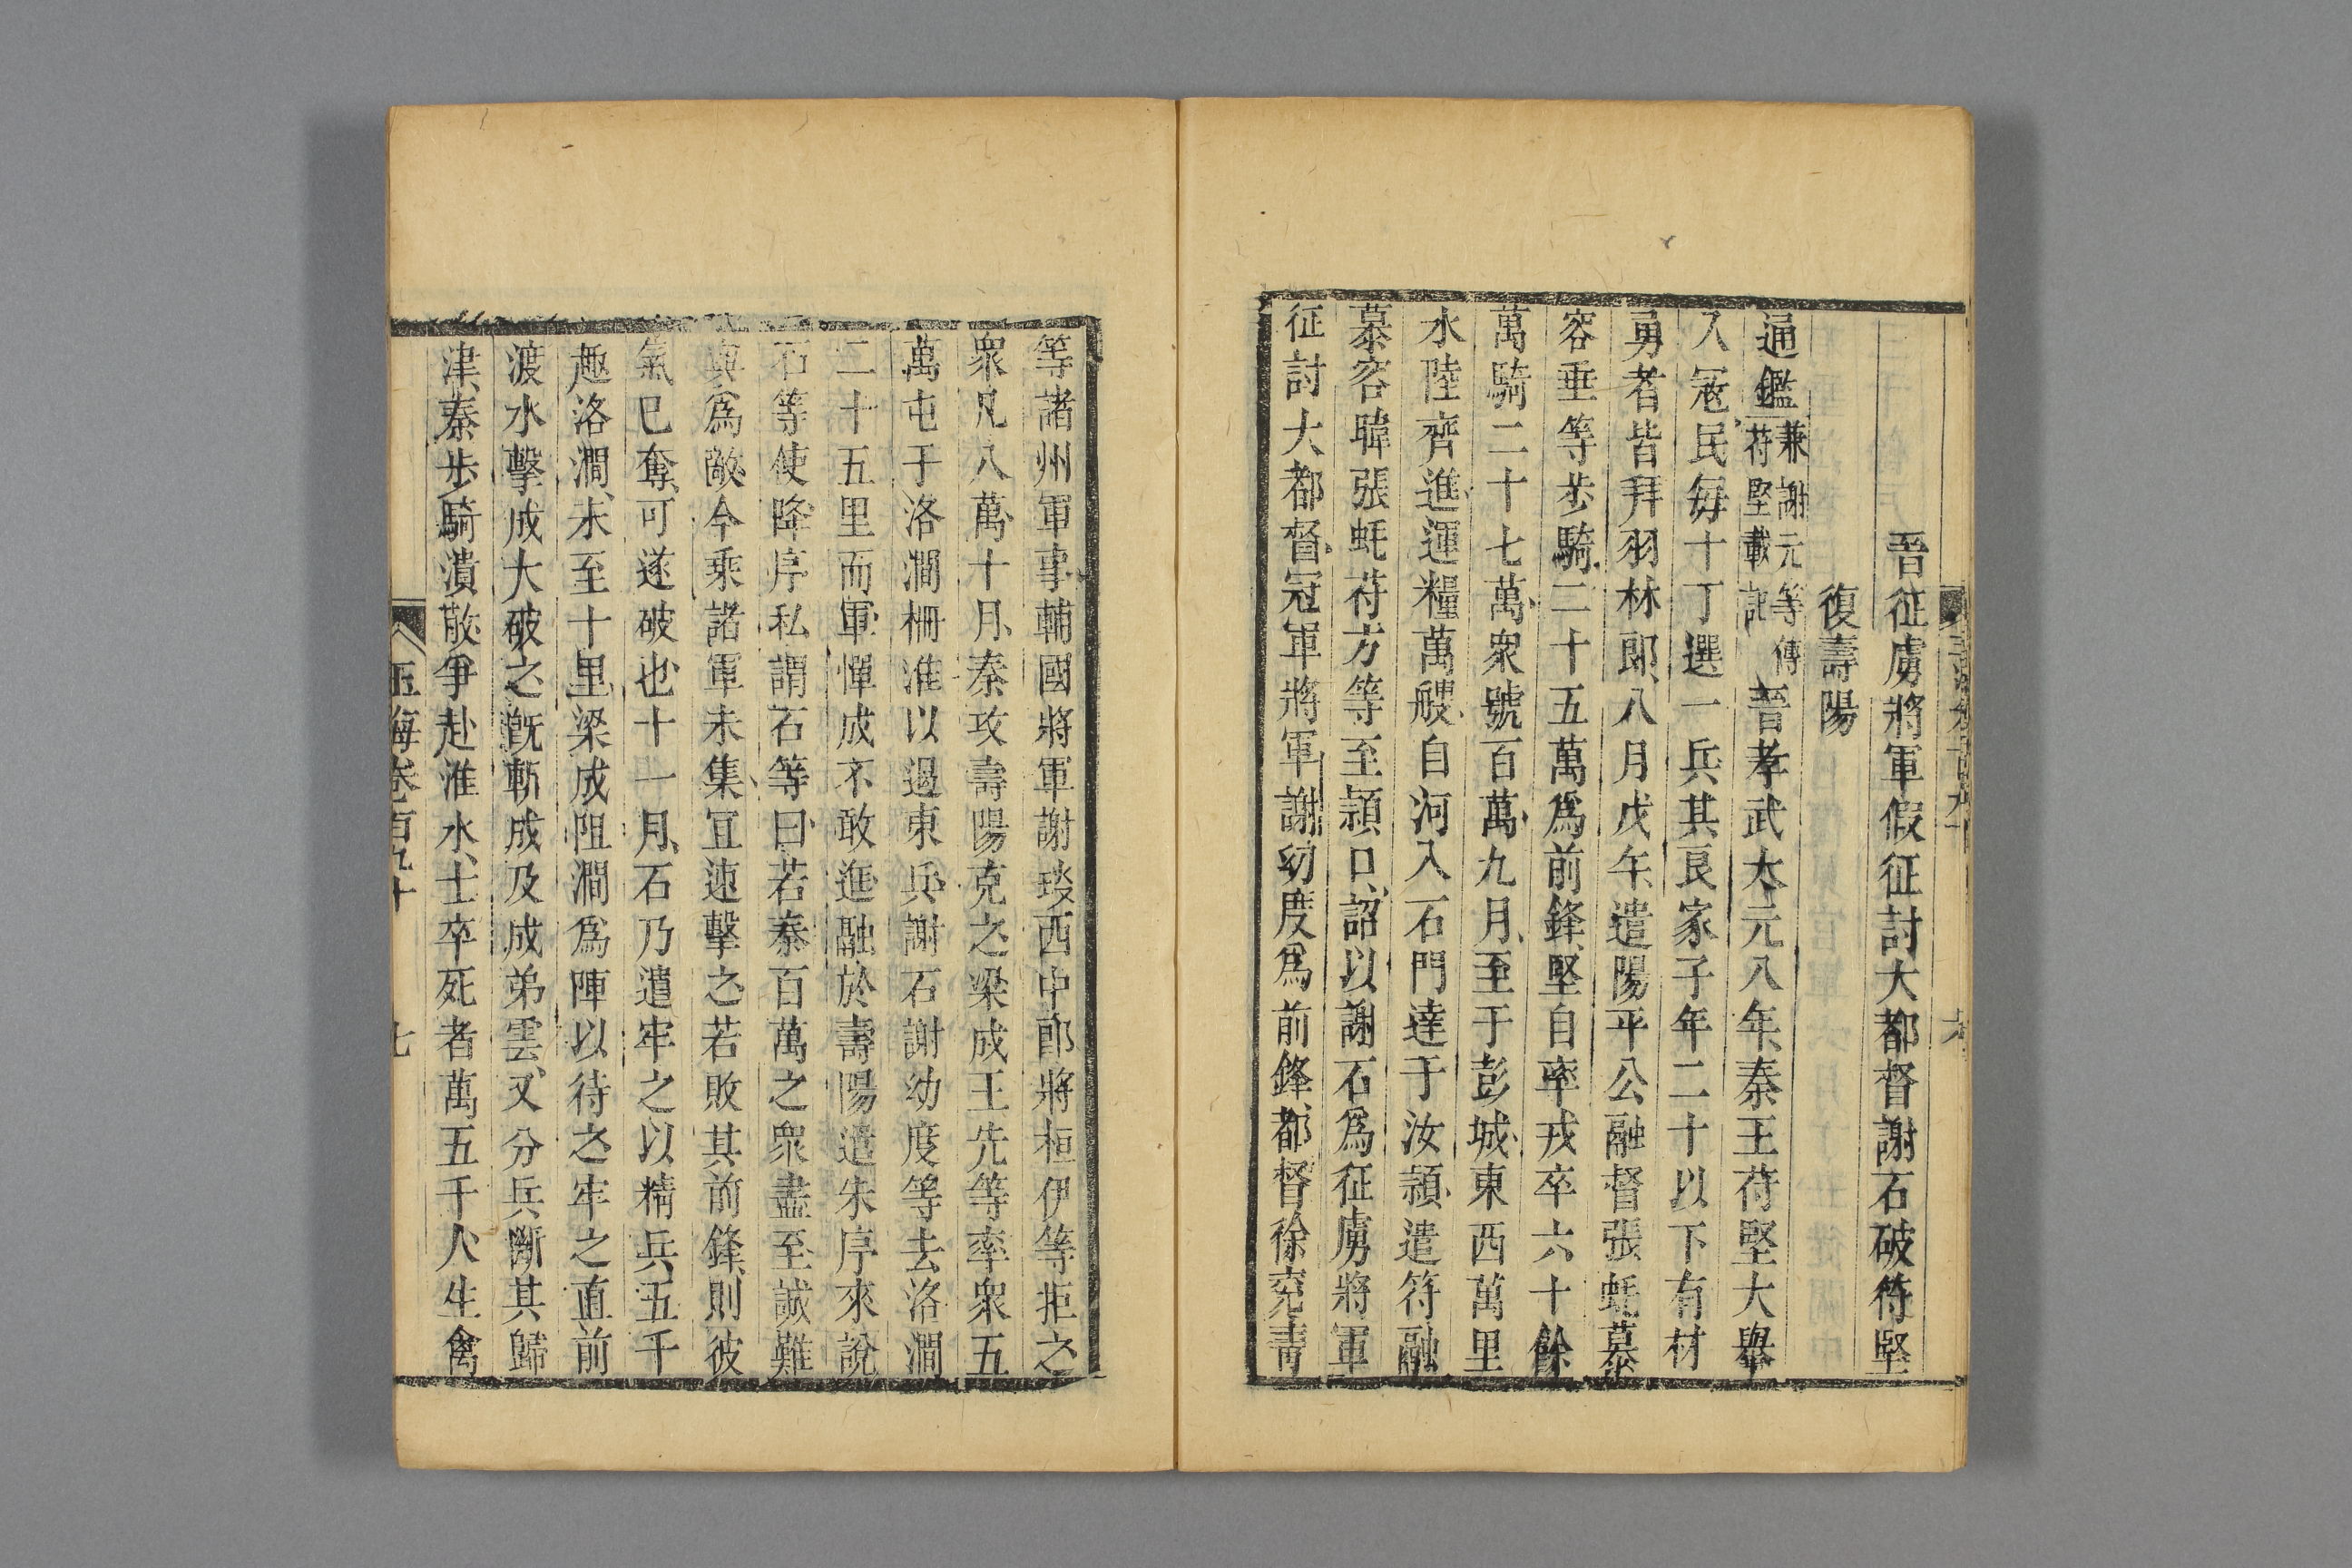 晉征虜將軍假征討大都督謝石破符堅
復壽陽
通鑑兼謝元等傳苻堅載記晉孝武太元八年秦王苻堅大舉
入寇民每十丁選一兵其良家子年二十以下有材
勇者皆拜羽林郎八月戊午遣陽平公融督張蚝慕
容垂等步騎二十五萬爲前鋒堅自率戎卒六十餘
萬騎二十七萬衆號百萬九月至于彭城東西萬里
水陸齊進運糧萬艘自河入石門達于汝潁遣符融
慕容暐張蚝苻方等至潁口詔以謝石爲征虜將軍
征討大都督冠軍將軍謝幼度爲前鋒都督徐兗青
等諸州軍事輔國將軍謝琰西中郎將桓伊等拒之
衆凡八萬十月秦攻壽陽克之梁成王先等率衆五
萬屯于洛澗柵淮以遏東兵謝石謝幼度等去洛澗
二十五里而軍憚成不敢進融於壽陽遣朱序來說
石等使降序私謂石等曰若秦百萬之衆盡至誠難
與爲敵今乘諸軍未集宜速擊之若敗其前鋒則彼
氣已奪可遂破也十一月石乃遣牢之以精兵五千
趣洛澗未至十里梁成阻澗爲陣以待之牢之直前
渡水擊成大破之旣斬成及成弟雲又分兵斷其歸
津秦步騎潰散爭赴淮水士卒死者萬五千人生禽
玉海卷百九十
七